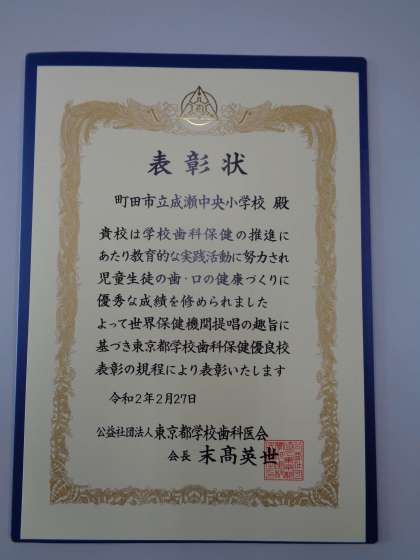 表彰状
町田市立成瀬中央小学校 殿
貴校は学校歯科保健の推進に
あたり教育的な実践活動に努力され
児童生徒の歯・口の健康づくりに
優秀な成績を修められました
よって世界保健機関提唱の趣旨に
基づき東京都学校歯科保健優良校
表彰の規程により表彰いたします
令和2年2月27日
公益社団法人 東京都学校歯科医会
会長 末髙英世